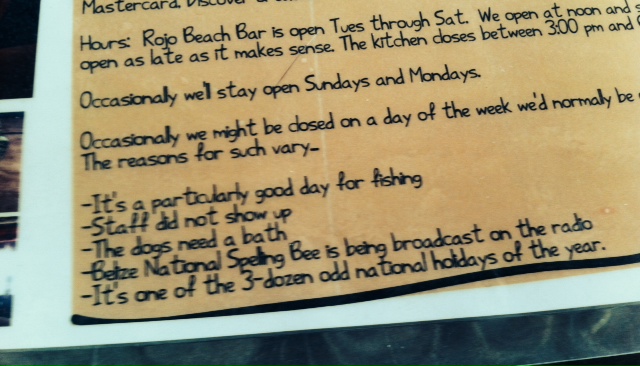 Mastercard. Discover
Hours: Rojo Beach Bar is open Tues through Sat. We open at noon and
open as late as it makes sense. The kitchen closes between 3:00 pm and
Occasionally we'll stay open Sundays and Mondays.
Occasionally we might be closed on a day of the week we'd normally be
The reasons for such vary-
-It's a particularly good day for fishing
-Staff did not show up
-The dogs need a bath
-Belize National Spelling Bee is being broadcast on the radio
-It's one of the 3-dozen odd national holidays of the year.